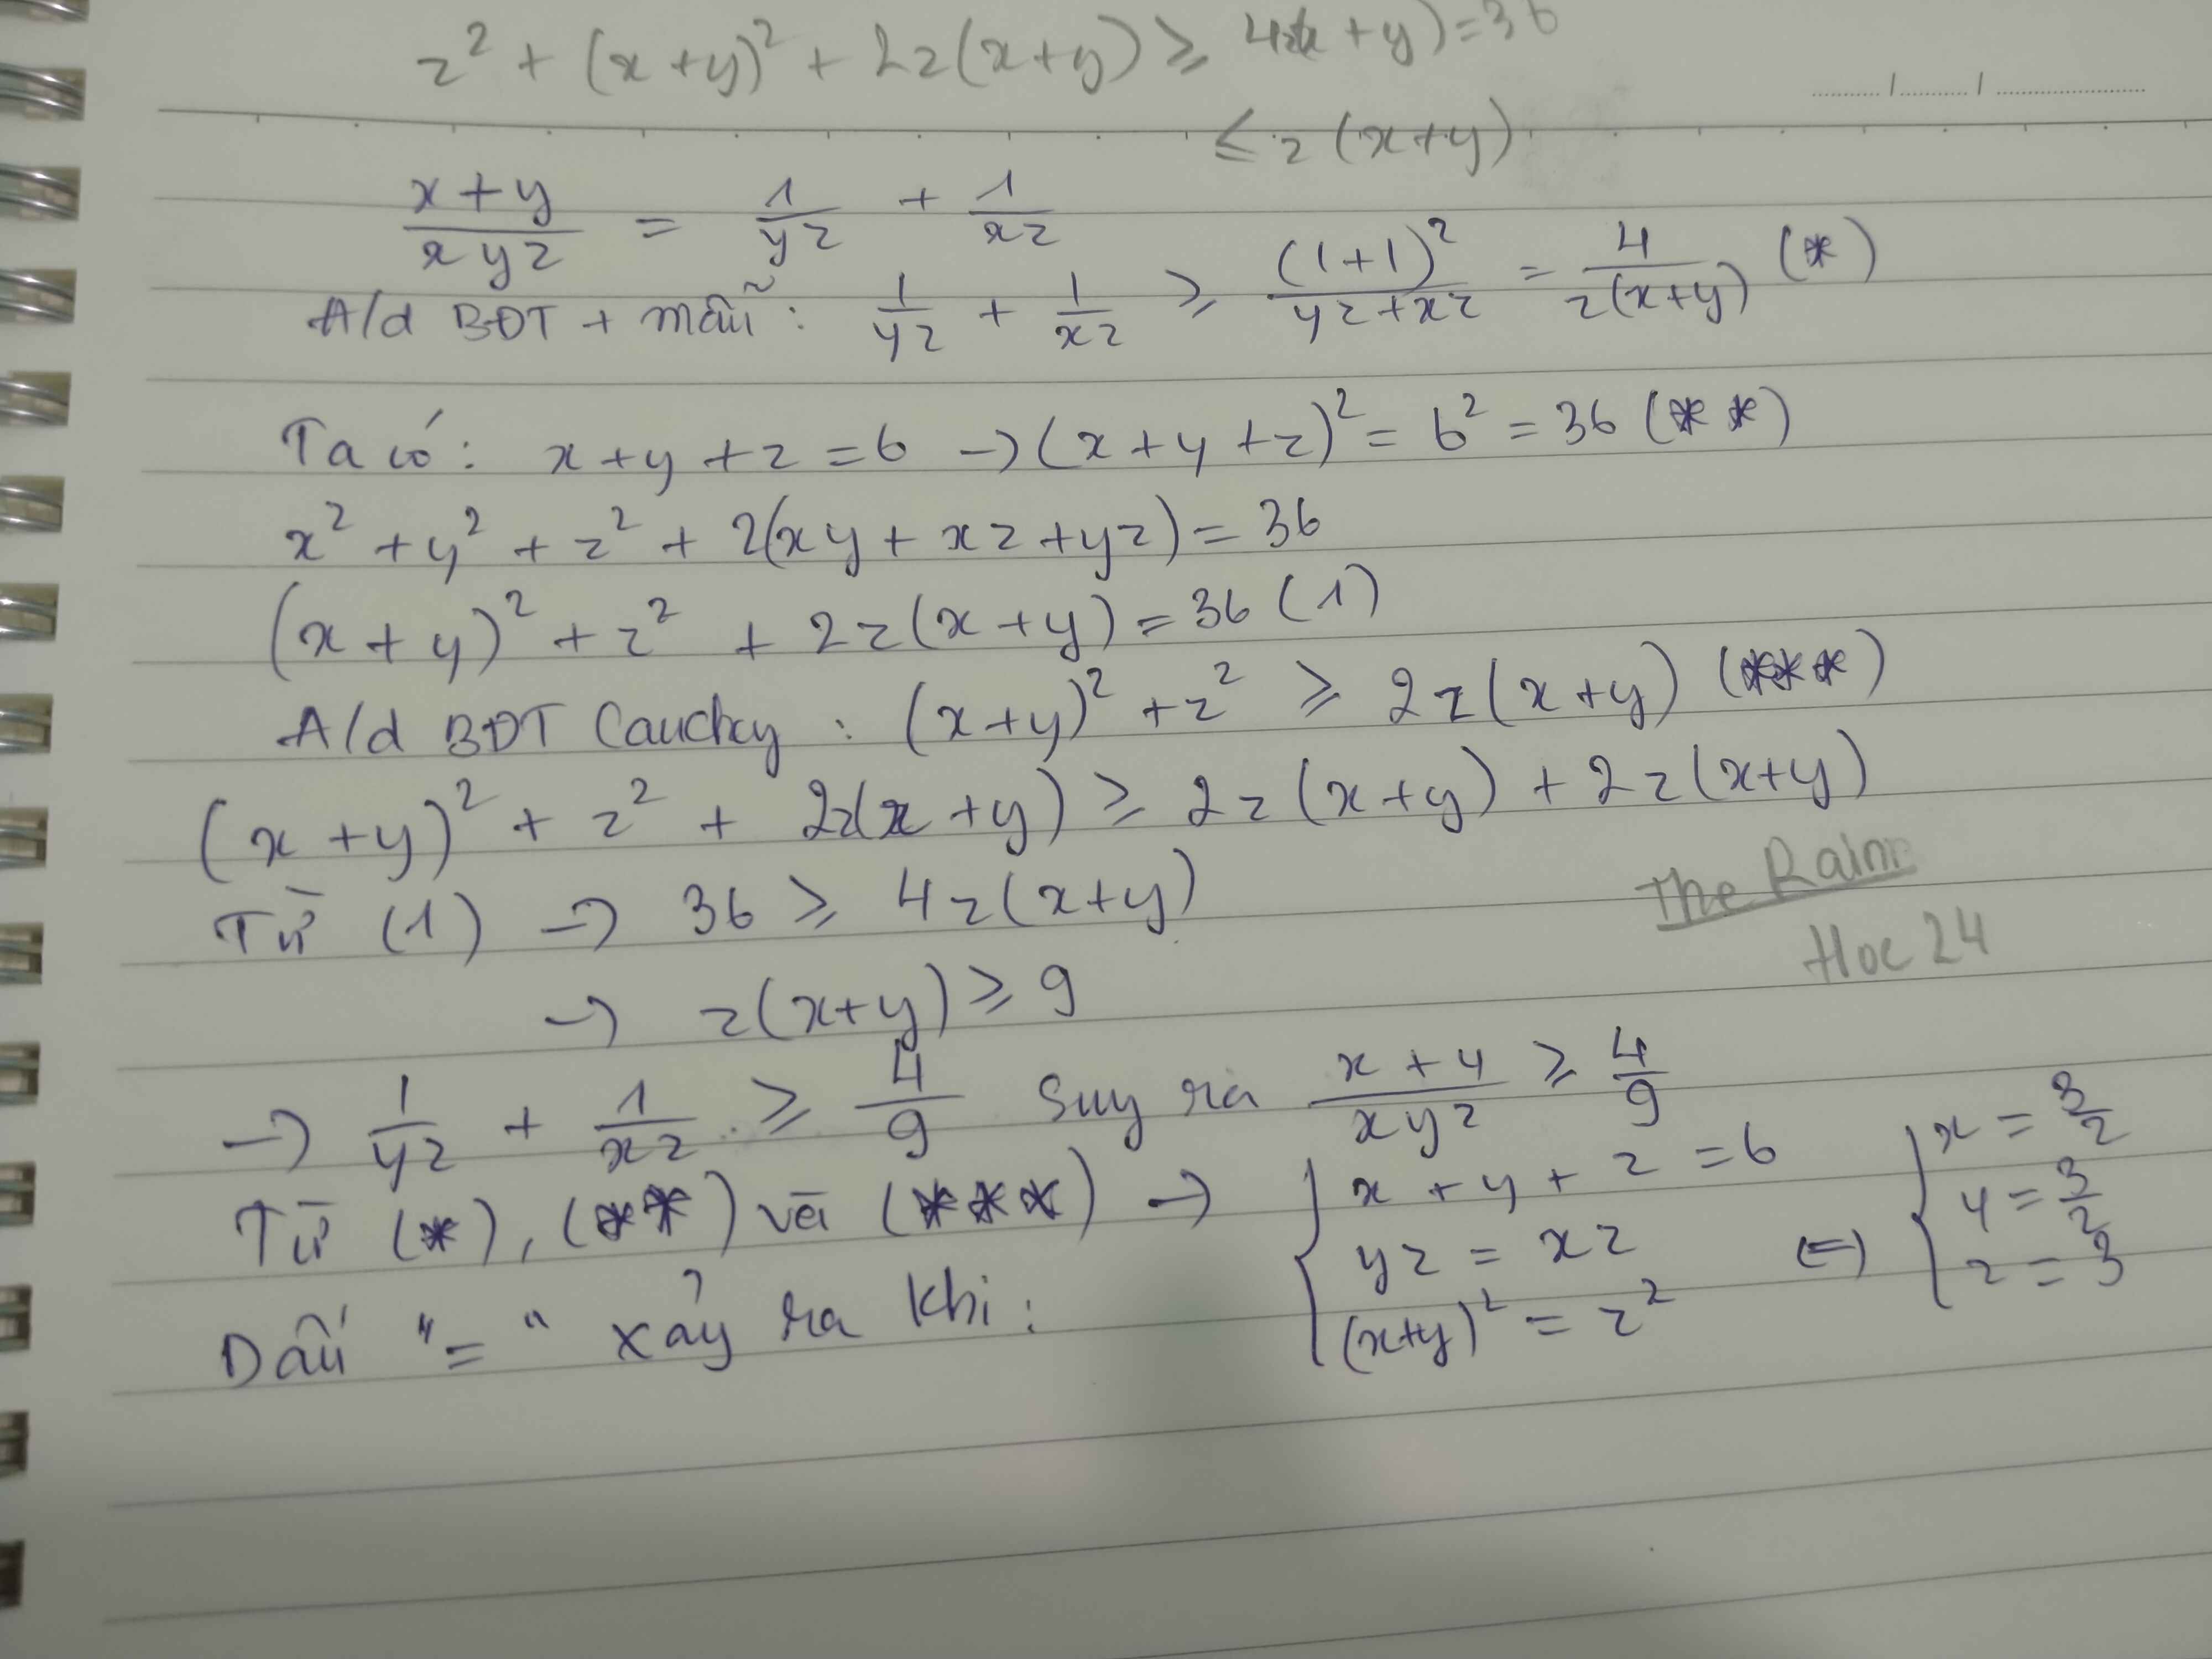 z² + (x+y)² + 2z(x+y) ≥ 4z(x+y)=36
≤ z(x+y)
(x+y)/(xyz) = 1/(yz) + 1/(xz)
A/d BĐT + mẫu: 1/(yz) + 1/(xz) ≥ (1+1)²/(yz+xz) = 4/(z(x+y)) (*)
Ta có: x+y+z=6 → (x+y+z)² = 6² = 36 (**)
x² + y² + z² + 2(xy + xz + yz) = 36
(x+y)² + z² + 2z(x+y) = 36 (1)
A/d BĐT Cauchy : (x+y)² + z² ≥ 2z(x+y) (***)
(x+y)² + z² + 2z(x+y) ≥ 2z(x+y) + 2z(x+y)
Từ (1) → 36 ≥ 4z(x+y)
The Rain
Hoc 24
→ z(x+y) ≥ 9
→ 1/(yz) + 1/(xz) ≥ 4/9 Suy ra (x+y)/(xyz) ≥ 4/9
Từ (*), (**) và (***) → { x+y+z=6 ⇔ { x = 3/2
yz = xz y = 3/2
Dấu "=" xảy ra khi: (x+y)² = z² z = 3